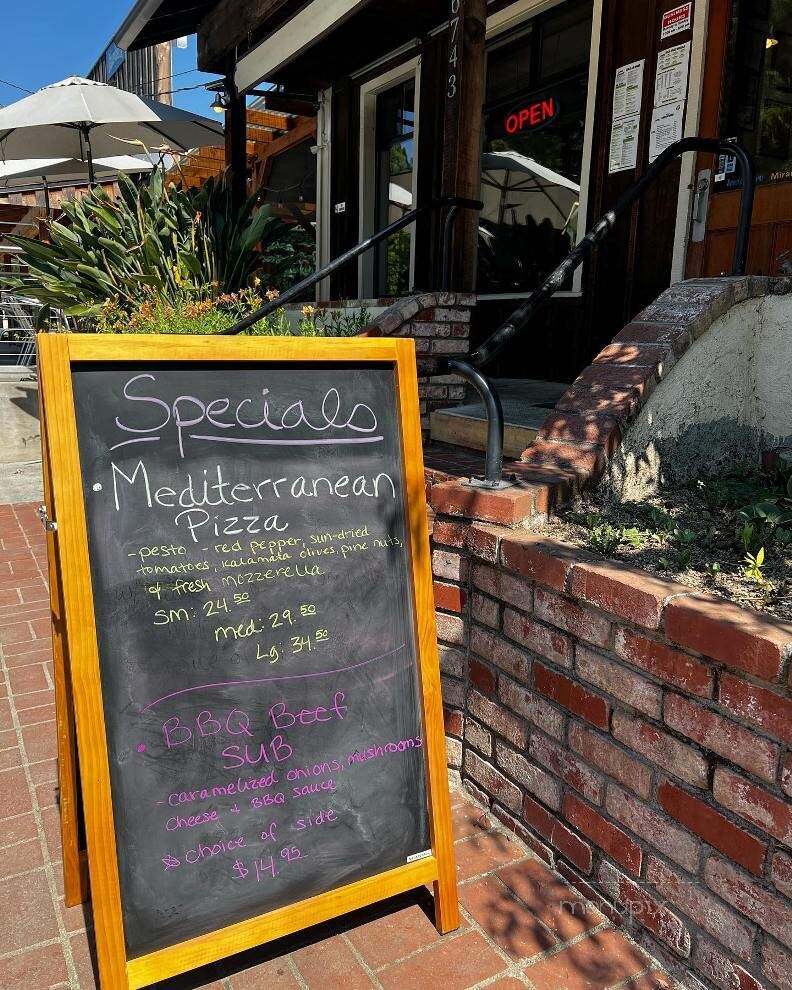 8743
OPEN
Specials
• Mediterranean
Pizza
- pesto - red pepper, sun-dried
tomatoes, kalamata olives, pine nuts,
& fresh mozzerella
sm: 24.50
med: 29.50
Lg: 34.50
• BBQ Beef
SUB
- caramelized onions, mushrooms
cheese & BBQ sauce
choice of side
$14.95
menupix